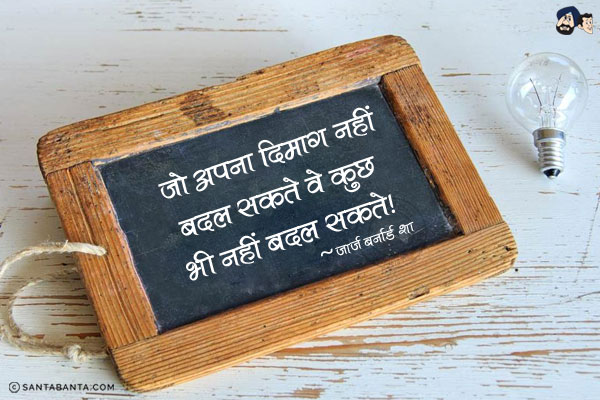 जो अपना दिमाग नहीं
बदल सकते वे कुछ
भी नहीं बदल सकते!
~ जार्ज बर्नार्ड शा
© SANTABANTA.COM